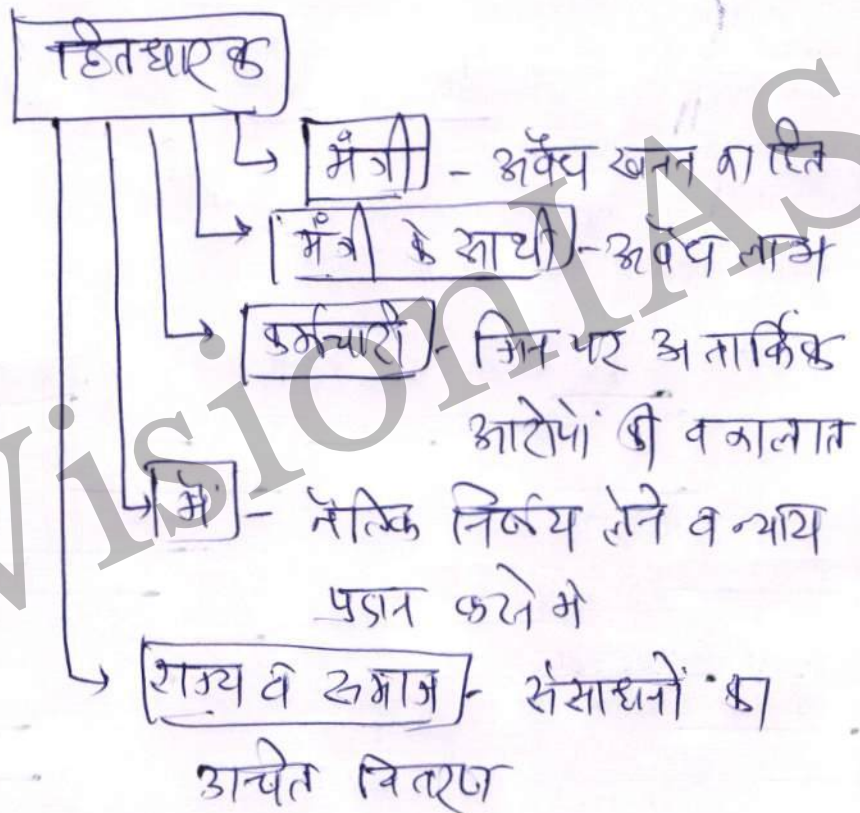 हितधारक
मंत्री - अवैध खनन का हित
मंत्री के साथी - अवैध लाभ
कर्मचारी - जिन पर अतार्किक
आरोपों की वकालत
मैं - नैतिक निर्णय लेने व न्याय
प्रदान करने में
राज्य व समाज - संसाधनों का
उचित वितरण
VisionIAS